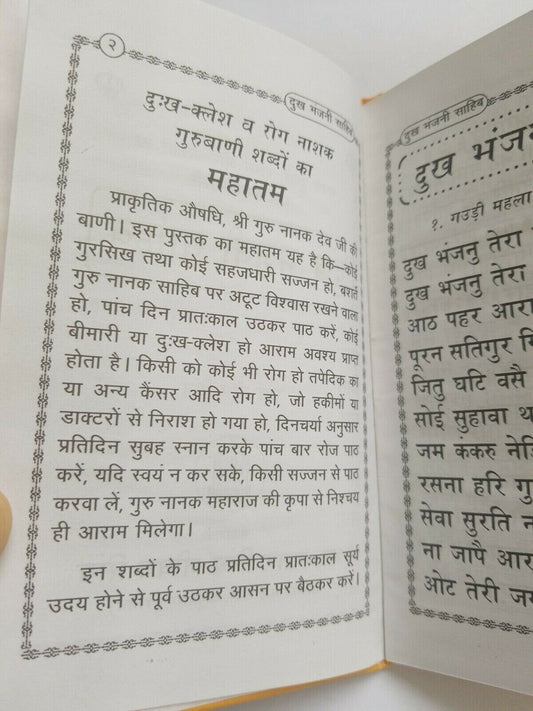 २
दुख भंजनी साहिब
दुःख-क्लेश व रोग नाशक
गुरुबाणी शब्दों का
महातम
प्राकृतिक औषधि, श्री गुरु नानक देव जी की
बाणी। इस पुस्तक का महातम यह है कि–कोई
गुरसिख तथा कोई सहजधारी सज्जन हो, बशर्ते
गुरु नानक साहिब पर अटूट विश्वास रखने वाला
हो, पांच दिन प्रातःकाल उठकर पाठ करें, कोई
बीमारी या दुःख-क्लेश हो आराम अवश्य प्राप्त
होता है। किसी को कोई भी रोग हो तपेदिक का
या अन्य कैंसर आदि रोग हो, जो हकीमों या
डाक्टरों से निराश हो गया हो, दिनचर्या अनुसार
प्रतिदिन सुबह स्नान करके पांच बार रोज पाठ
करें, यदि स्वयं न कर सके, किसी सज्जन से पाठ
करवा लें, गुरु नानक महाराज की कृपा से निश्चय
ही आराम मिलेगा।
इन शब्दों के पाठ प्रतिदिन प्रातःकाल सूर्य
उदय होने से पूर्व उठकर आसन पर बैठकर करें।
दुख भंजनी साहिब
दुख
१. गउड़ी महला
दुख भंजनु तेरा
दुख भंजनु तेरा
आठ पहर
पूरन सतिगुर
जितु घटि वसै
सोई सुहावा
जम कंकरु
रसना हरि
सेवा सुरति
ना जापै
ओट तेरी